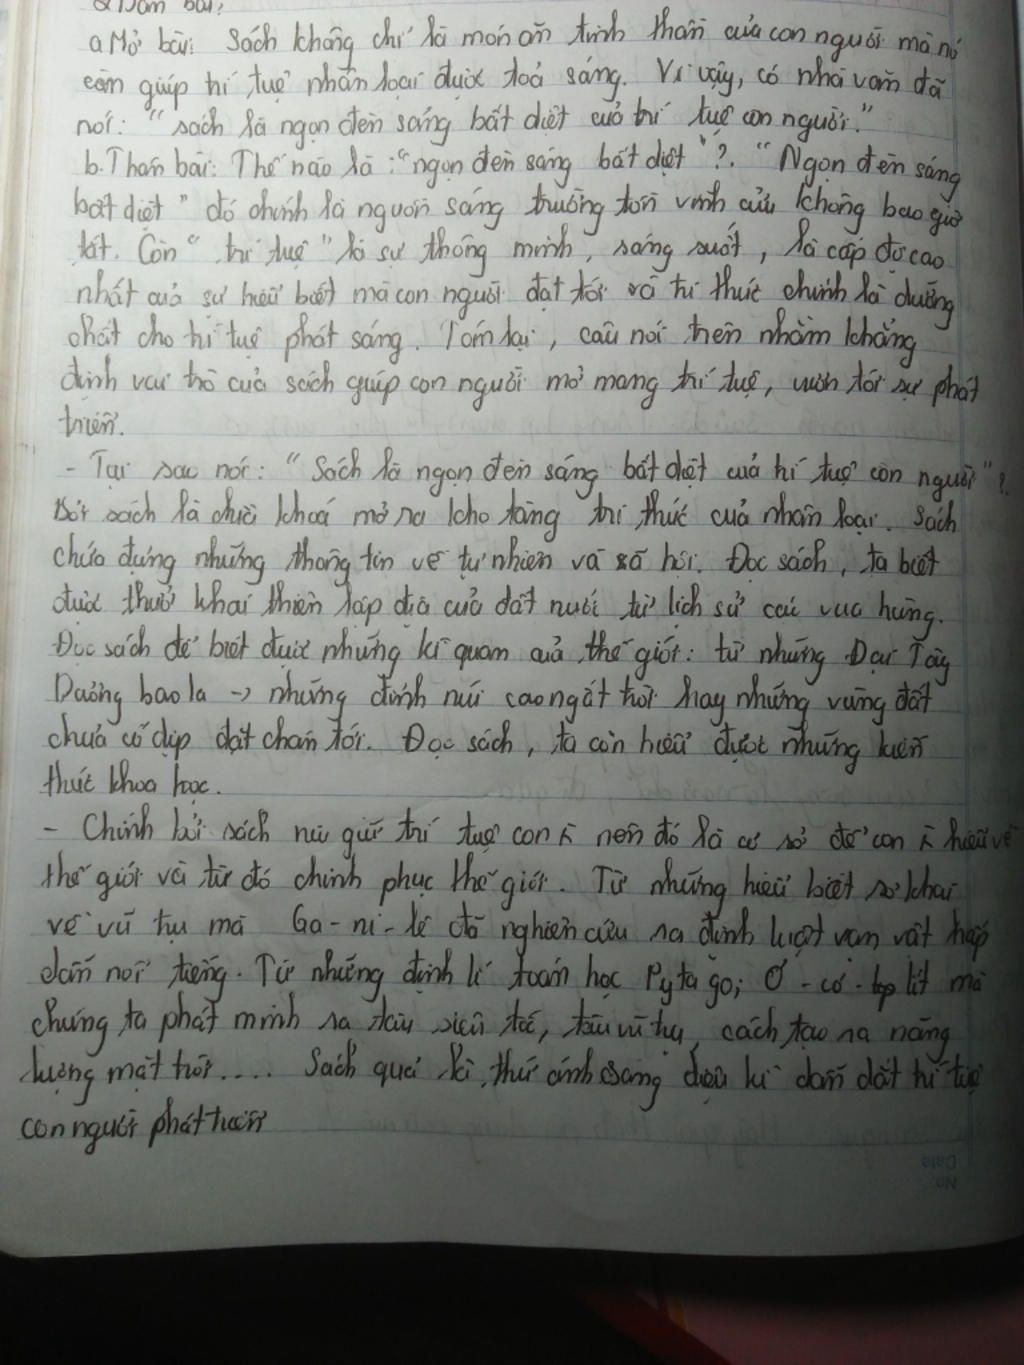 2. Dàn bài:
a. Mở bài: Sách không chỉ là món ăn tinh thần của con người mà nó
còn giúp trí tuệ nhân loại được toả sáng. Vì vậy, có nhà văn đã
nói: "sách là ngọn đèn sáng bất diệt của trí tuệ con người."
b. Thân bài: Thế nào là: "ngọn đèn sáng bất diệt"?. "Ngọn đèn sáng
bất diệt" đó chính là nguồn sáng trường tồn vĩnh cửu không bao giờ
tắt. Còn "trí tuệ" là sự thông minh, sáng suốt, là cấp độ cao
nhất của sự hiểu biết mà con người đạt tới và tri thức chính là dưỡng
chất cho trí tuệ phát sáng. Tóm lại, câu nói trên nhằm khẳng
định vai trò của sách giúp con người mở mang trí tuệ, vươn tới sự phát
triển.
- Tại sao nói: "Sách là ngọn đèn sáng bất diệt của trí tuệ con người"?.
Bởi sách là chìa khoá mở ra kho tàng tri thức của nhân loại. Sách
chứa đựng những thông tin về tự nhiên và xã hội. Đọc sách, ta biết
được thuở khai thiên lập địa của đất nước từ lịch sử các vua hùng.
Đọc sách để biết được những kì quan của thế giới: từ những Đại Tây
Dương bao la -> những đỉnh núi cao ngất trời hay những vùng đất
chưa có dịp đặt chân tới. Đọc sách, ta còn hiểu được những kiến
thức khoa học.
- Chính bởi sách níu giữ trí tuệ con ng` nên đó là cơ sở để con ng` hiểu về
thế giới và từ đó chinh phục thế giới. Từ những hiểu biết sơ khai
về vũ trụ mà Ga-ni-lê đã nghiên cứu ra định luật vạn vật hấp
dẫn nổi tiếng. Từ những định lí toán học Pytago; Ơ-cơ-lít mà
chúng ta phát minh ra tàu siêu tốc, tàu vũ trụ, cách tạo ra năng
lượng mặt trời.... Sách quả là thứ ánh sáng diệu kì dẫn dắt trí tuệ
con người phát triển